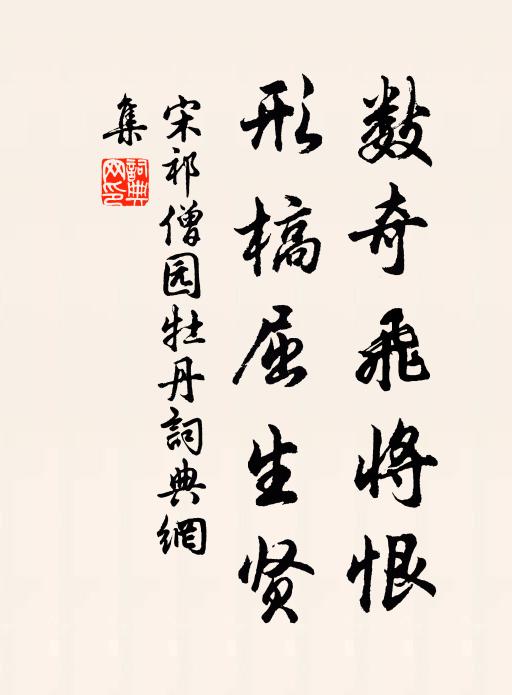 数奇飛将恨
形槁屈生贤
宋祁僧园牡丹詞典網
集
詞典
网印